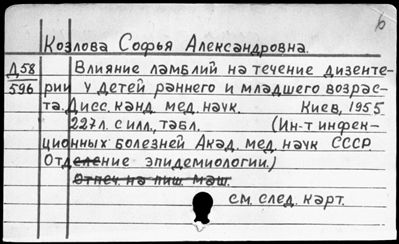 б
Козлова Софья Александровна.
Д58 Влияние лямблий на течение дизенте-
596 рии у детей раннего и младшего возрас-
та. Дисс. канд. мед. наук. Киев, 1955
227л. с илл., табл. (Ин-т инфек-
ционных болезней Акад. мед. наук СССР
Отделение эпидемиологии.)
Отпеч. на пиш. маш.
см. след. карт.